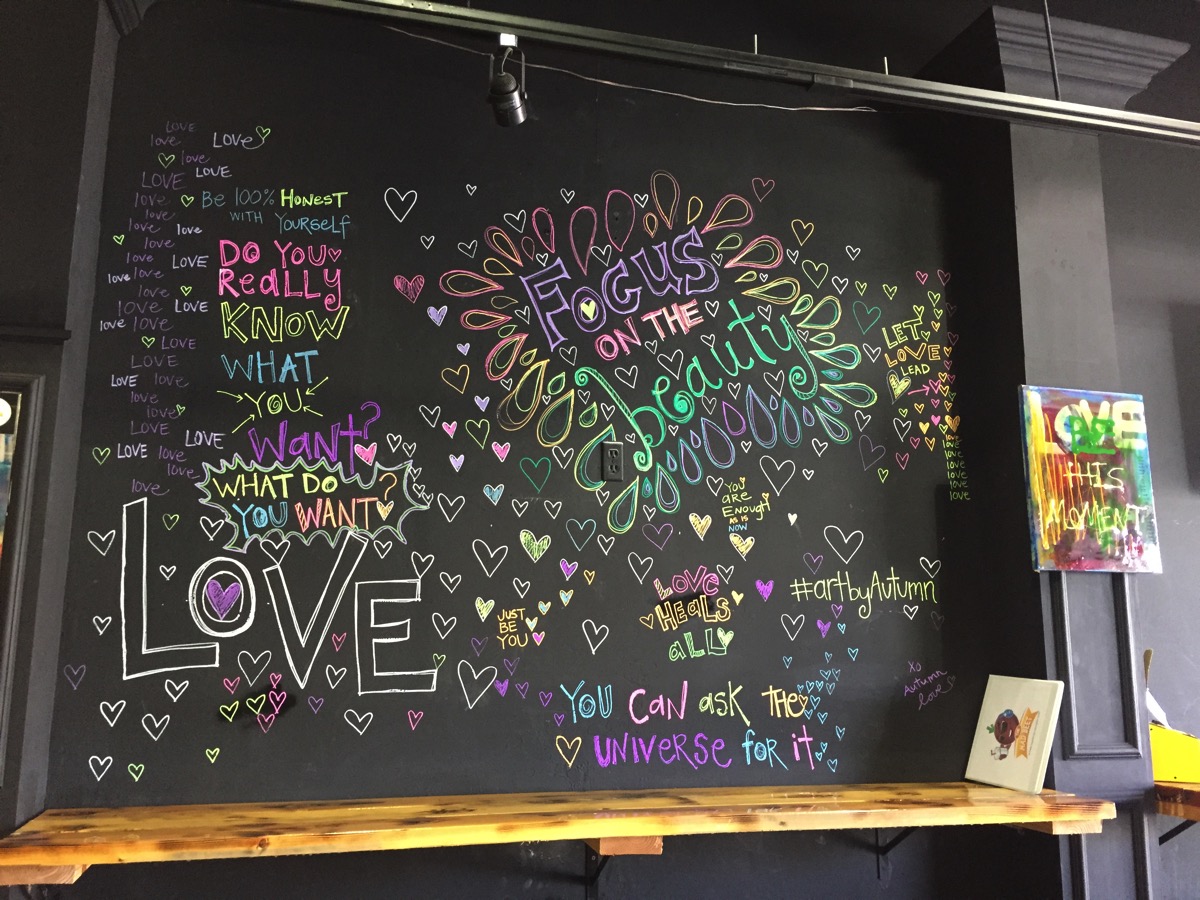 LOVE
love LOVE
love
LOVE LOVE
love Be 100% HONEST
love WITH YourSelf
love love
love DO YOU
LOVE ReaLLY
love love
love
love LOVE KNOW
love love
LOVE
LOVE WHAT
LOVE love
love YOU
love
LOVE
LOVE want?
LOVE love
love WHAT DO
love YOU WANT?
LOVE
FOCUS
ON THE
beauty
LET
LOVE
LEAD
love
love
love
love
love
love
love
YOU
are
ENOUGH
AS IS
NOW
JUST
BE
YOU
LOVE
HEALS
aLL
#artbyAutumn
XO
Autumn
love
YOU Can ask the
UNIVERSE for it
LOVE
THIS
MOMENT